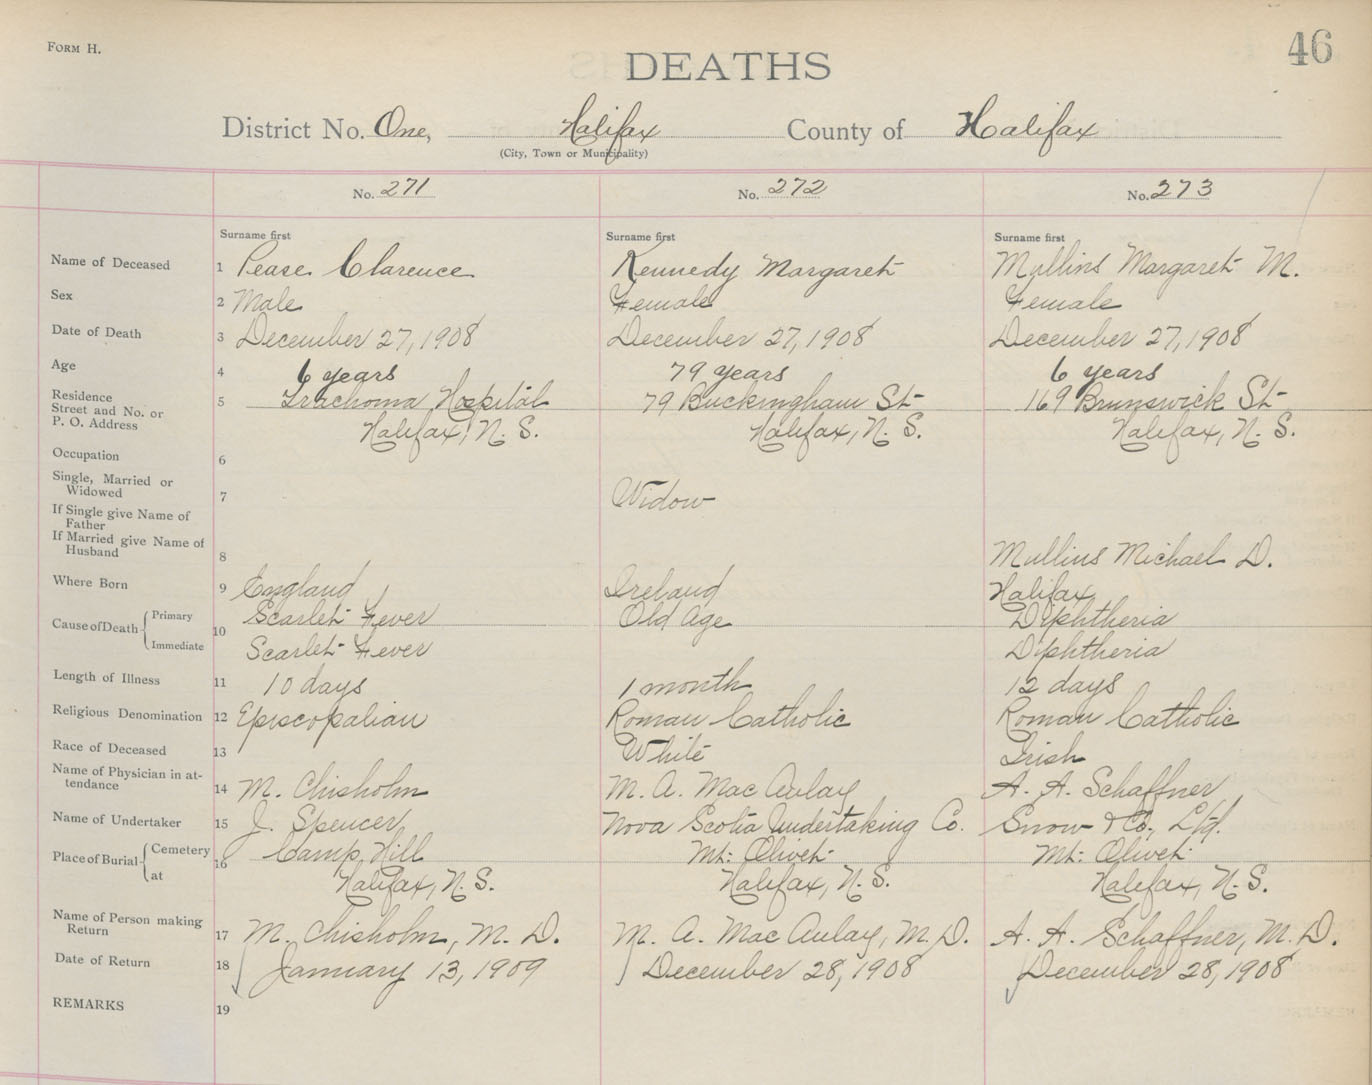 FORM H.
46
DEATHS
District No. One, Halifax County of Halifax
(City, Town or Municipality)
No. 271 No. 272 No. 273
Surname first Surname first Surname first
Name of Deceased 1 Pease Clarence Kennedy Margaret Mullins Margaret M.
Sex 2 Male Female Female
Date of Death 3 December 27, 1908 December 27, 1908 December 27, 1908
Age 4 6 years 79 years 6 years
Residence
Street and No. or
P. O. Address
5 Trachoma Hospital 79 Buckingham St 169 Brunswick St
Halifax, N. S. Halifax, N. S. Halifax, N. S.
Occupation 6
Single, Married or
Widowed
7 Widow
If Single give Name of
Father
If Married give Name of
Husband
8 Mullins Michael D.
Where Born 9 England Ireland Halifax
Cause of Death Primary Scarlet Fever Old Age Diphtheria
10
Immediate Scarlet Fever Diphtheria
Length of Illness 11 10 days 1 month 12 days
Religious Denomination 12 Episcopalian Roman Catholic Roman Catholic
Race of Deceased 13 White Irish
Name of Physician in at-
tendance
14 M. Chisholm M. A. Mac Aulay A. A. Schaffner
Name of Undertaker 15 J. Spencer Nova Scotia Undertaking Co. Snow & Co., Ltd.
Place of Burial Cemetery Camp Hill Mt: Olivet Mt: Olivet
16
at Halifax, N. S. Halifax, N. S. Halifax, N. S.
Name of Person making
Return
17 M. Chisholm, M. D. M. A. Mac Aulay, M. D. A. A. Schaffner, M. D.
Date of Return 18 January 13, 1909 December 28, 1908 December 28, 1908
REMARKS 19